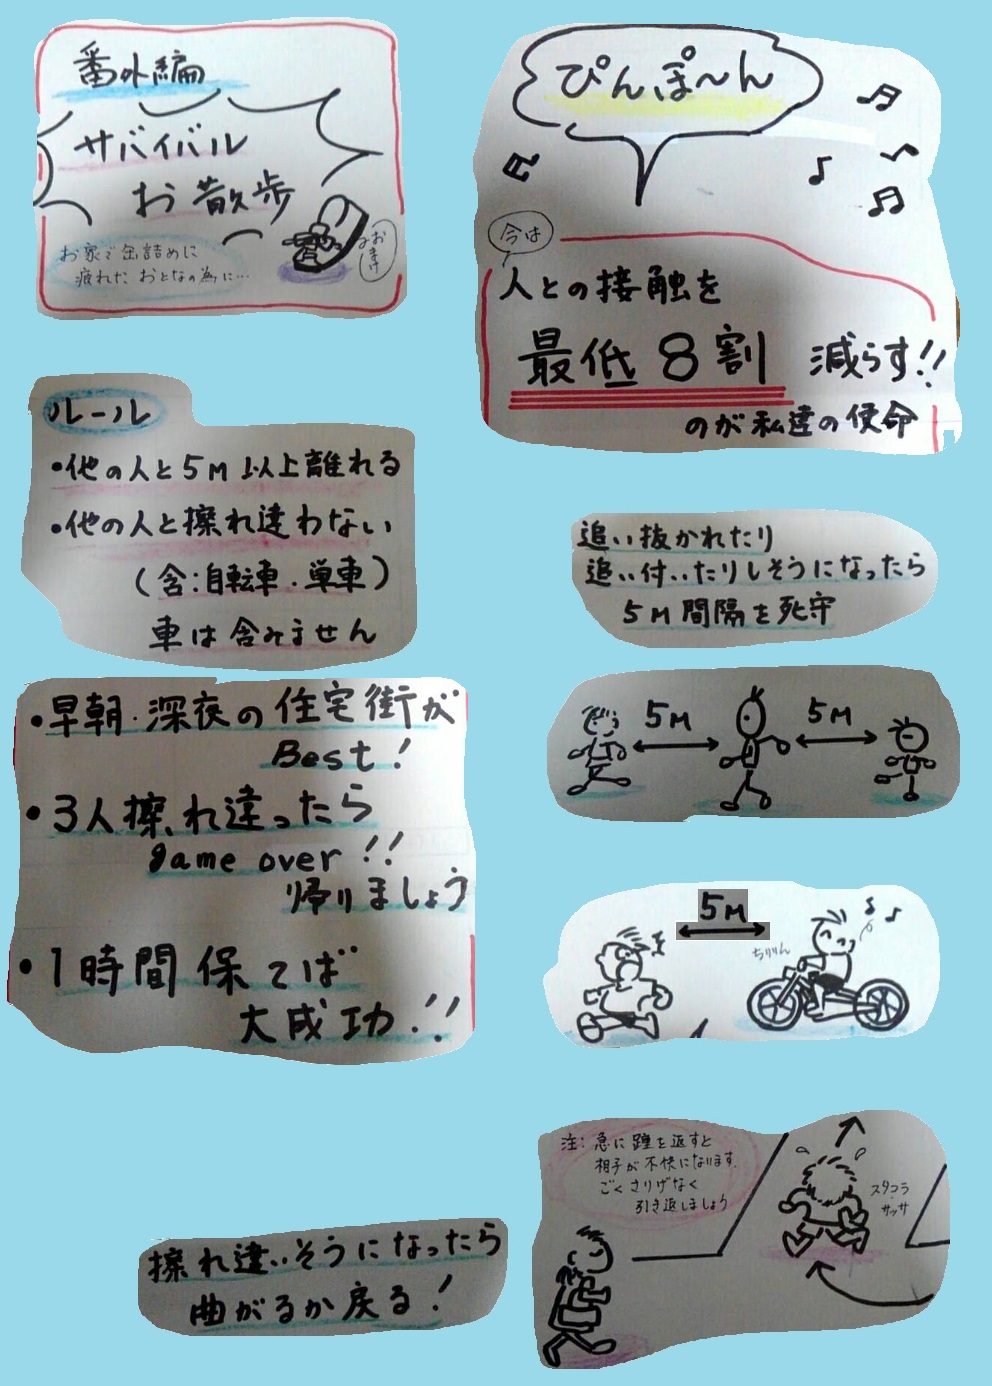 番外編
サバイバル
お散歩
お家で缶詰めに
疲れた おとなの為に…
おまけ
ぴんぽ〜ん
今は
人との接触を
最低8割 減らす!!
のが私達の使命
ルール
•他の人と5M以上離れる
•他の人と擦れ違わない
(含:自転車・単車)
車は含みません
追い抜かれたり
追い付いたりしそうになったら
5M間隔を死守
5M
5M
•早朝・深夜の住宅街が
Best!
•3人擦れ違ったら
game over!!
帰りましょう
•1時間保てば
大成功!!
5M
ちりりん
注:急に踵を返すと
相手が不快になります.
ごくさりげなく
引き返しましょう
スタコラ
サッサ
擦れ違いそうになったら
曲がるか戻る!